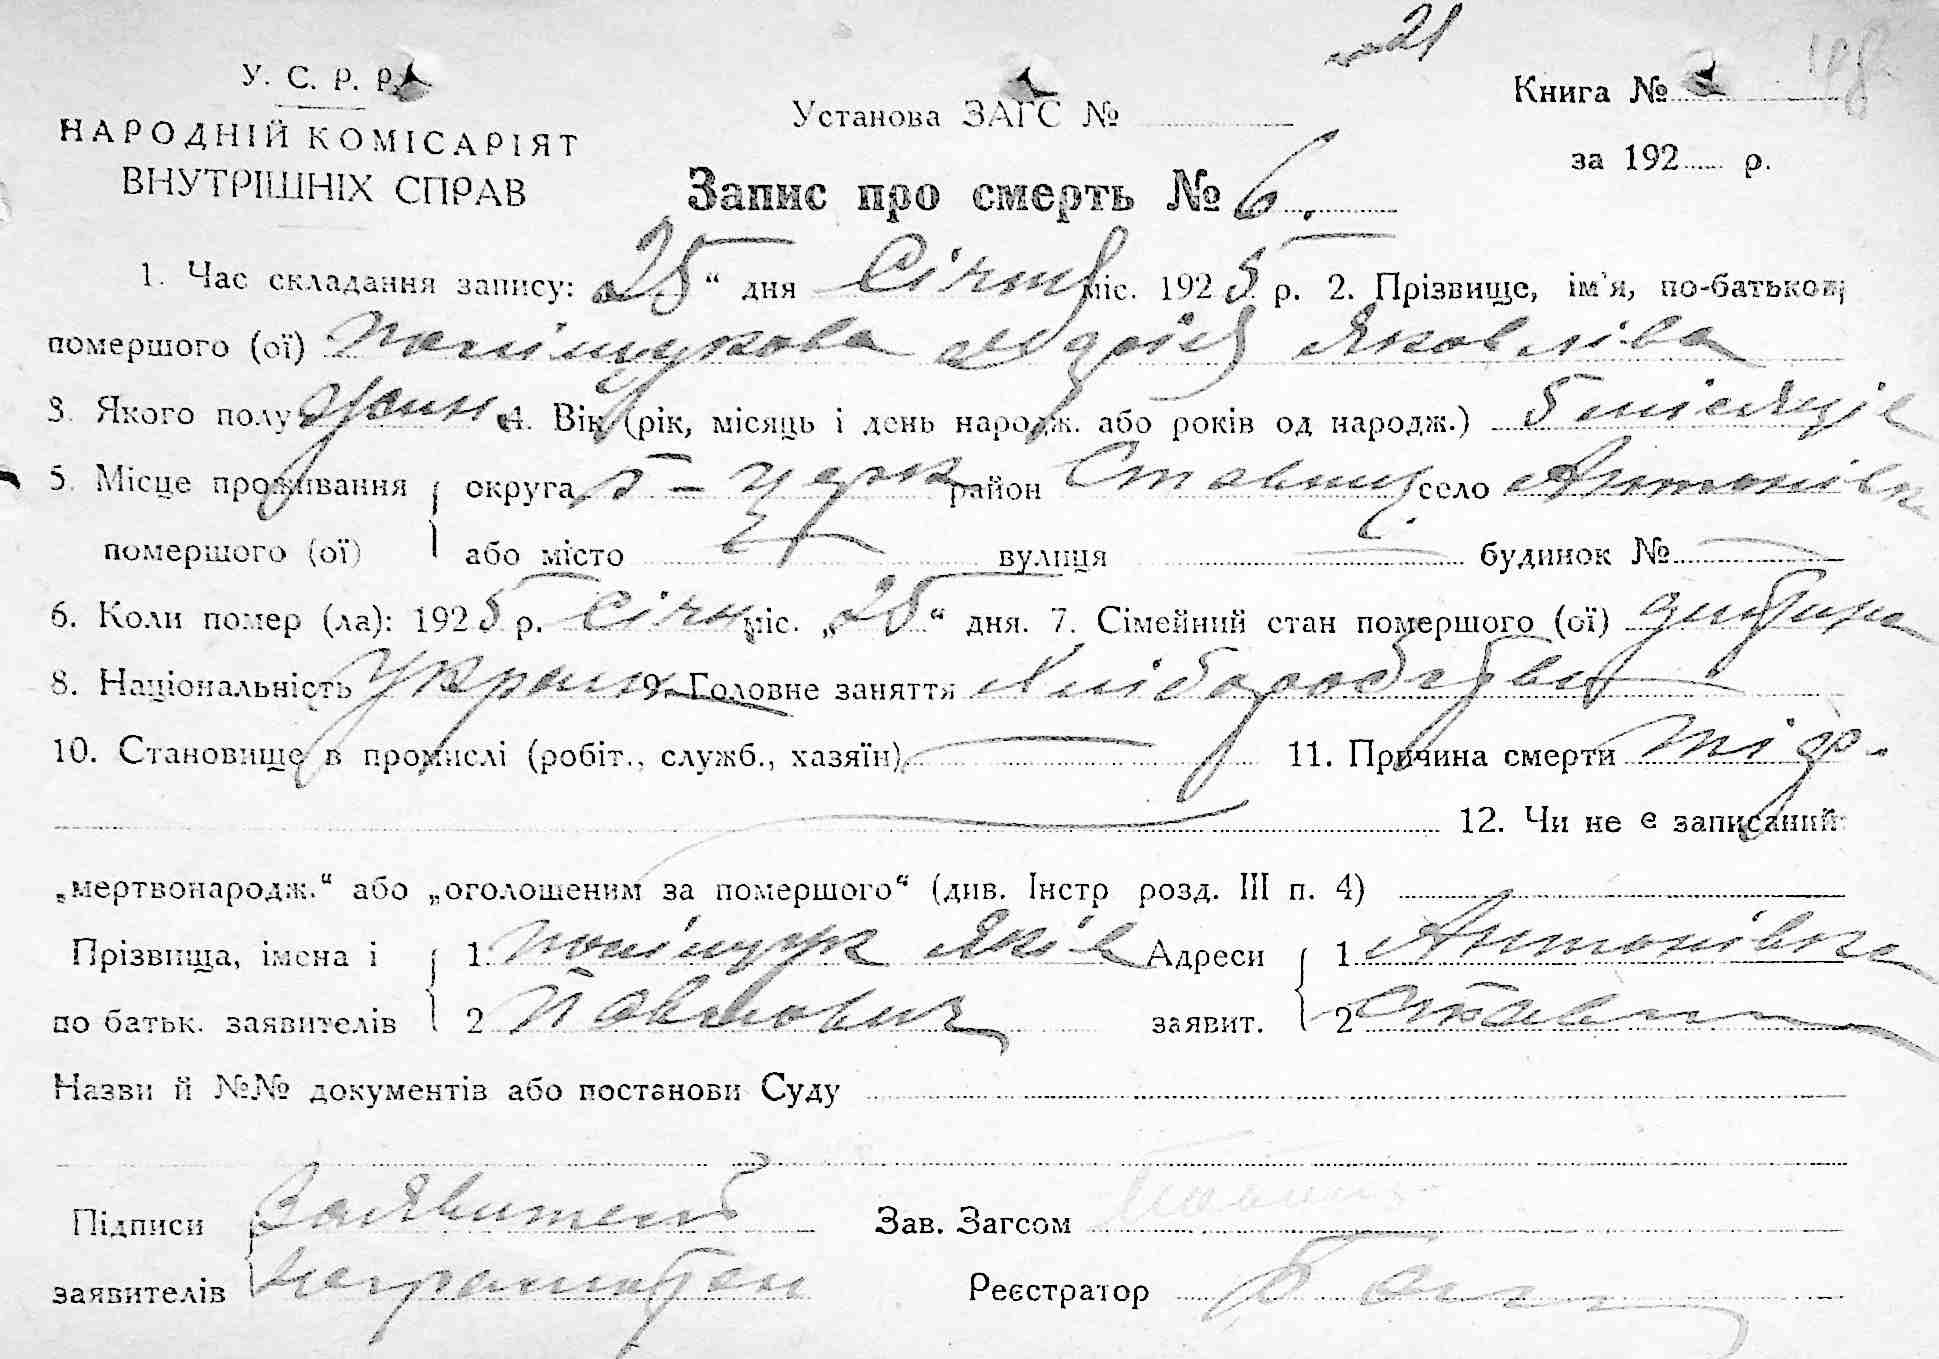 21
У. С. Р. Р.
Установа ЗАГС №
Книга № 198
НАРОДНІЙ КОМІСАРІЯТ
ВНУТРІШНІХ СПРАВ
за 192 р.
Запис про смерть № 6.
1. Час складання запису: 25 “ дня Січня міс. 1925 р. 2. Прізвище, ім'я, по-батькові
помершого (ої) Поліщукова Марія Яковліва
3. Якого полу жин. 4. Вік (рік, місяць і день народж. або років од народж.) 5 місяців
5. Місце проживання округа Б-Церк район Ставищ. село Антонівка
помершого (ої) або місто — вулиця — будинок № —
6. Коли помер (ла): 1925 р. Січня міс. „25“ дня. 7. Сімейний стан помершого (ої) дитина
8. Національність Україн 9. Головне заняття
10. Становище в промислі (робіт., служб., хазяїн) — 11. Причина смерти тіф.
12. Чи не є записаний:
„мертвонародж.“ або „оголошеним за помершого“ (див. Інстр розд. III п. 4)
Прізвища, імена і 1 Поліщук Яків Адреси 1 Антонівка
по батьк. заявителів 2 Павлович заявит. 2 Ставищ
Назви й №№ документів або постанови Суду
Підписи Заявитель Зав. Загсом
заявителів неграмотен Реєстратор